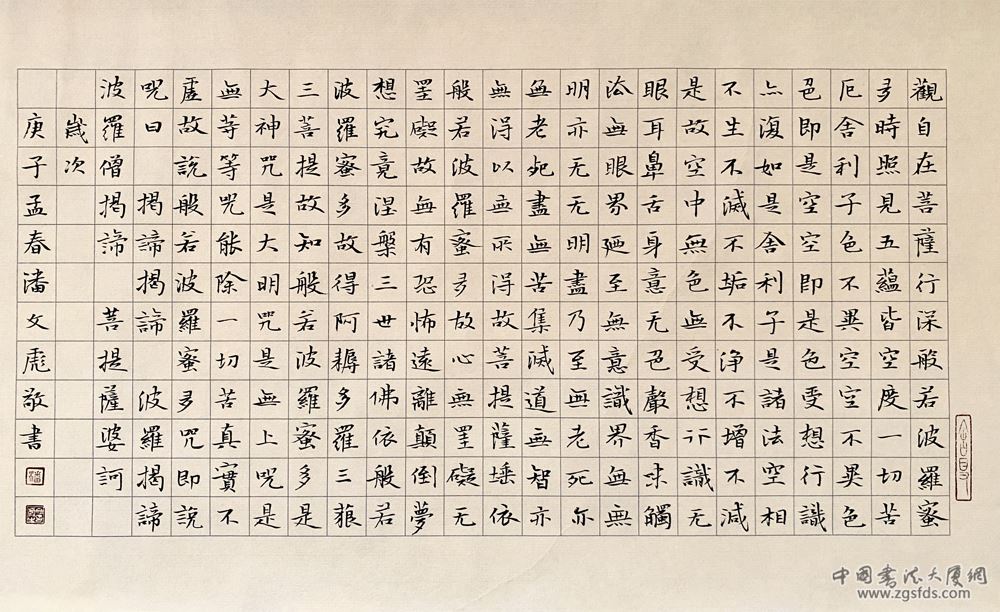 觀自在菩薩行深般若波羅蜜
多時照見五蘊皆空度一切苦
厄舍利子色不異空空不異色
色即是空空即是色受想行識
亦復如是舍利子是諸法空相
不生不滅不垢不淨不增不減
是故空中無色無受想行識无
眼耳鼻舌身意无色聲香味觸
法無眼界廼至無意識界無無
明亦无无明盡乃至無老死亦
無老死盡無苦集滅道無智亦
無得以無所得故菩提薩埵依
般若波羅蜜多故心無罣礙无
罣礙故無有恐怖遠離顛倒夢
想究竟涅槃三世諸佛依般若
波羅蜜多故得阿耨多羅三藐
三菩提故知般若波羅蜜多是
大神咒是大明咒是無上咒是
無等等咒能除一切苦真實不
虛故說般若波羅蜜多咒即說
咒曰 揭諦揭諦 波羅揭諦
波羅僧揭諦 菩提薩婆訶
歲次
庚子孟春潘文彪敬書
中国书法大厦網
www.zgsfds.com